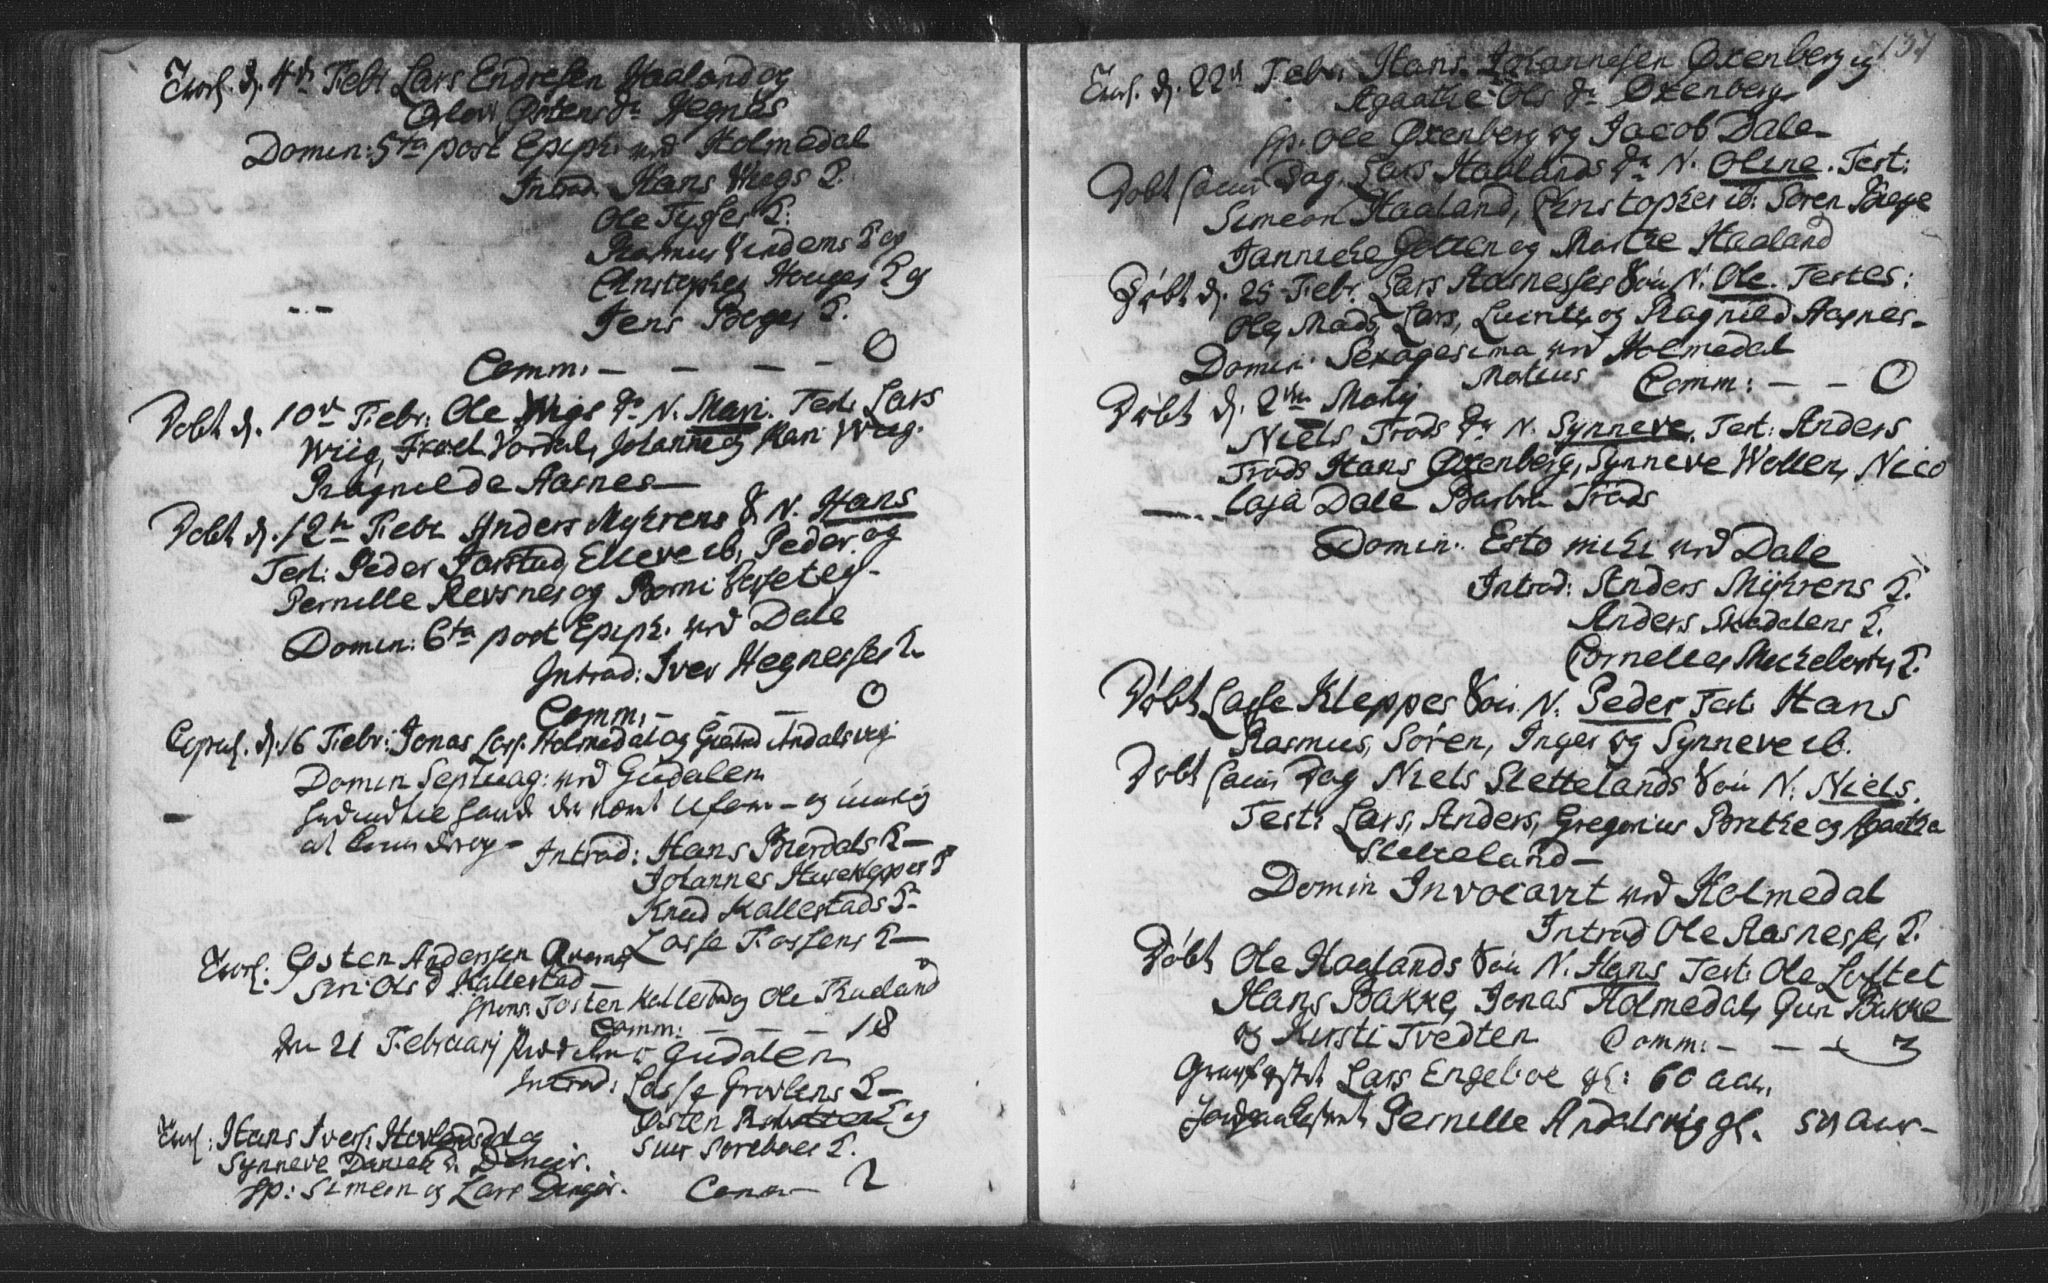 Trol. d. 4de Febr Lars Endresen Haaland og
Østens dr Hegnes
Domin: 5ta post Epiph: ved Holmedal
Introd: Hans Wiigs K.
Ole Tysses K:
Rasmus Vindems K og
Christopher Houges K og
Jens Boges K.
Comm: – – – – 0
Døbt d. 10de Febr: Ole Wigs dr N. Mari. Test: Lars
Wiig, Axel Vordal, Johanne og Mari Wiig.
Ragnilde Aarnes –
Døbt d. 12te Febr Anders Myhrens S. N. Hans
Test: Peder Jarstad, Elleve ib, Peder og
Pernille Revsnes og Borni
Domin: 6ta post Epiph: ved Dale
Introd: Iver Hegnesses K.
Comm: – – – 0
Copul. d. 16 Febr: Jonas Lars. Holmedal og Andalsvig
Domin Septuag: ved Gudalen
og
at Introd: Hans Bierdals K –
Johannes Huseklepper K
Knud Kallestads K –
Lasse Fossens K –
Trol: Østen Andersen og
Siri Ols d. Kallestad –
spons: Tosten Kallestad og Ole
Comm: – – – 18
Den 21 Februarij Gudalen
Introd: Lasse Grovlens K –
Østen K og
Trol: Hans Ivers: og
Siur K.
Synneve Daniels d. Dingør.
sp: Simeon og Lars Dingør.
Comm – 2
137
Trol. d. 22de Febr: Hans Johannesen Øxenberg og
Agaathe Ols dr Øxenberg
sp. Ole Øxenberg og Jacob Dale –
Døbt samme Dag Lars Haalands dr N. Oline. Test:
Simeon Haaland, Christopher ib: Søren Boge
Jannicke og Marthe Haaland
Døbt d. 25 Febr. Lars Aarnesses Søn N. Ole. Testes:
Ole, Mads, Lars, og Ragnild Aarnes –
Domin: Sexagesima ved Holmedal
Comm: – – 0
Døbt d. 2den Martij
Martius
Niels Trods dr N. Synneve. Test: Anders
Trods Hans Øxenberg, Synneve Wollen, Nico
laja Dale Barbra Trods
Domin: Esto mihi ved Dale
Introd: Anders Myhrens K.
Anders K.
Cornelius K.
Døbt Lasse Kleppes Søn N. Peder Test: Hans
Rasmus, Søren, Inger og Synneve ib.
Døbt samme Dag Niels Slettelands Søn N. Niels.
Test: Lars, Anders, Gregorius Brithe og Agaatha
Sletteland –
Domin Invocavit ved Holmedal
Introd Ole Aarnesses K.
Døbt Ole Haalands Søn N. Hans Test: Ole Loftet
Hans Bakke, Jonas Holmedal, Gun Bakke
og Kirsti Tvedten Comm: – – – 3
Lars Engeboe gl: 60 aar,
Pernille Andalsvig gl. aar –